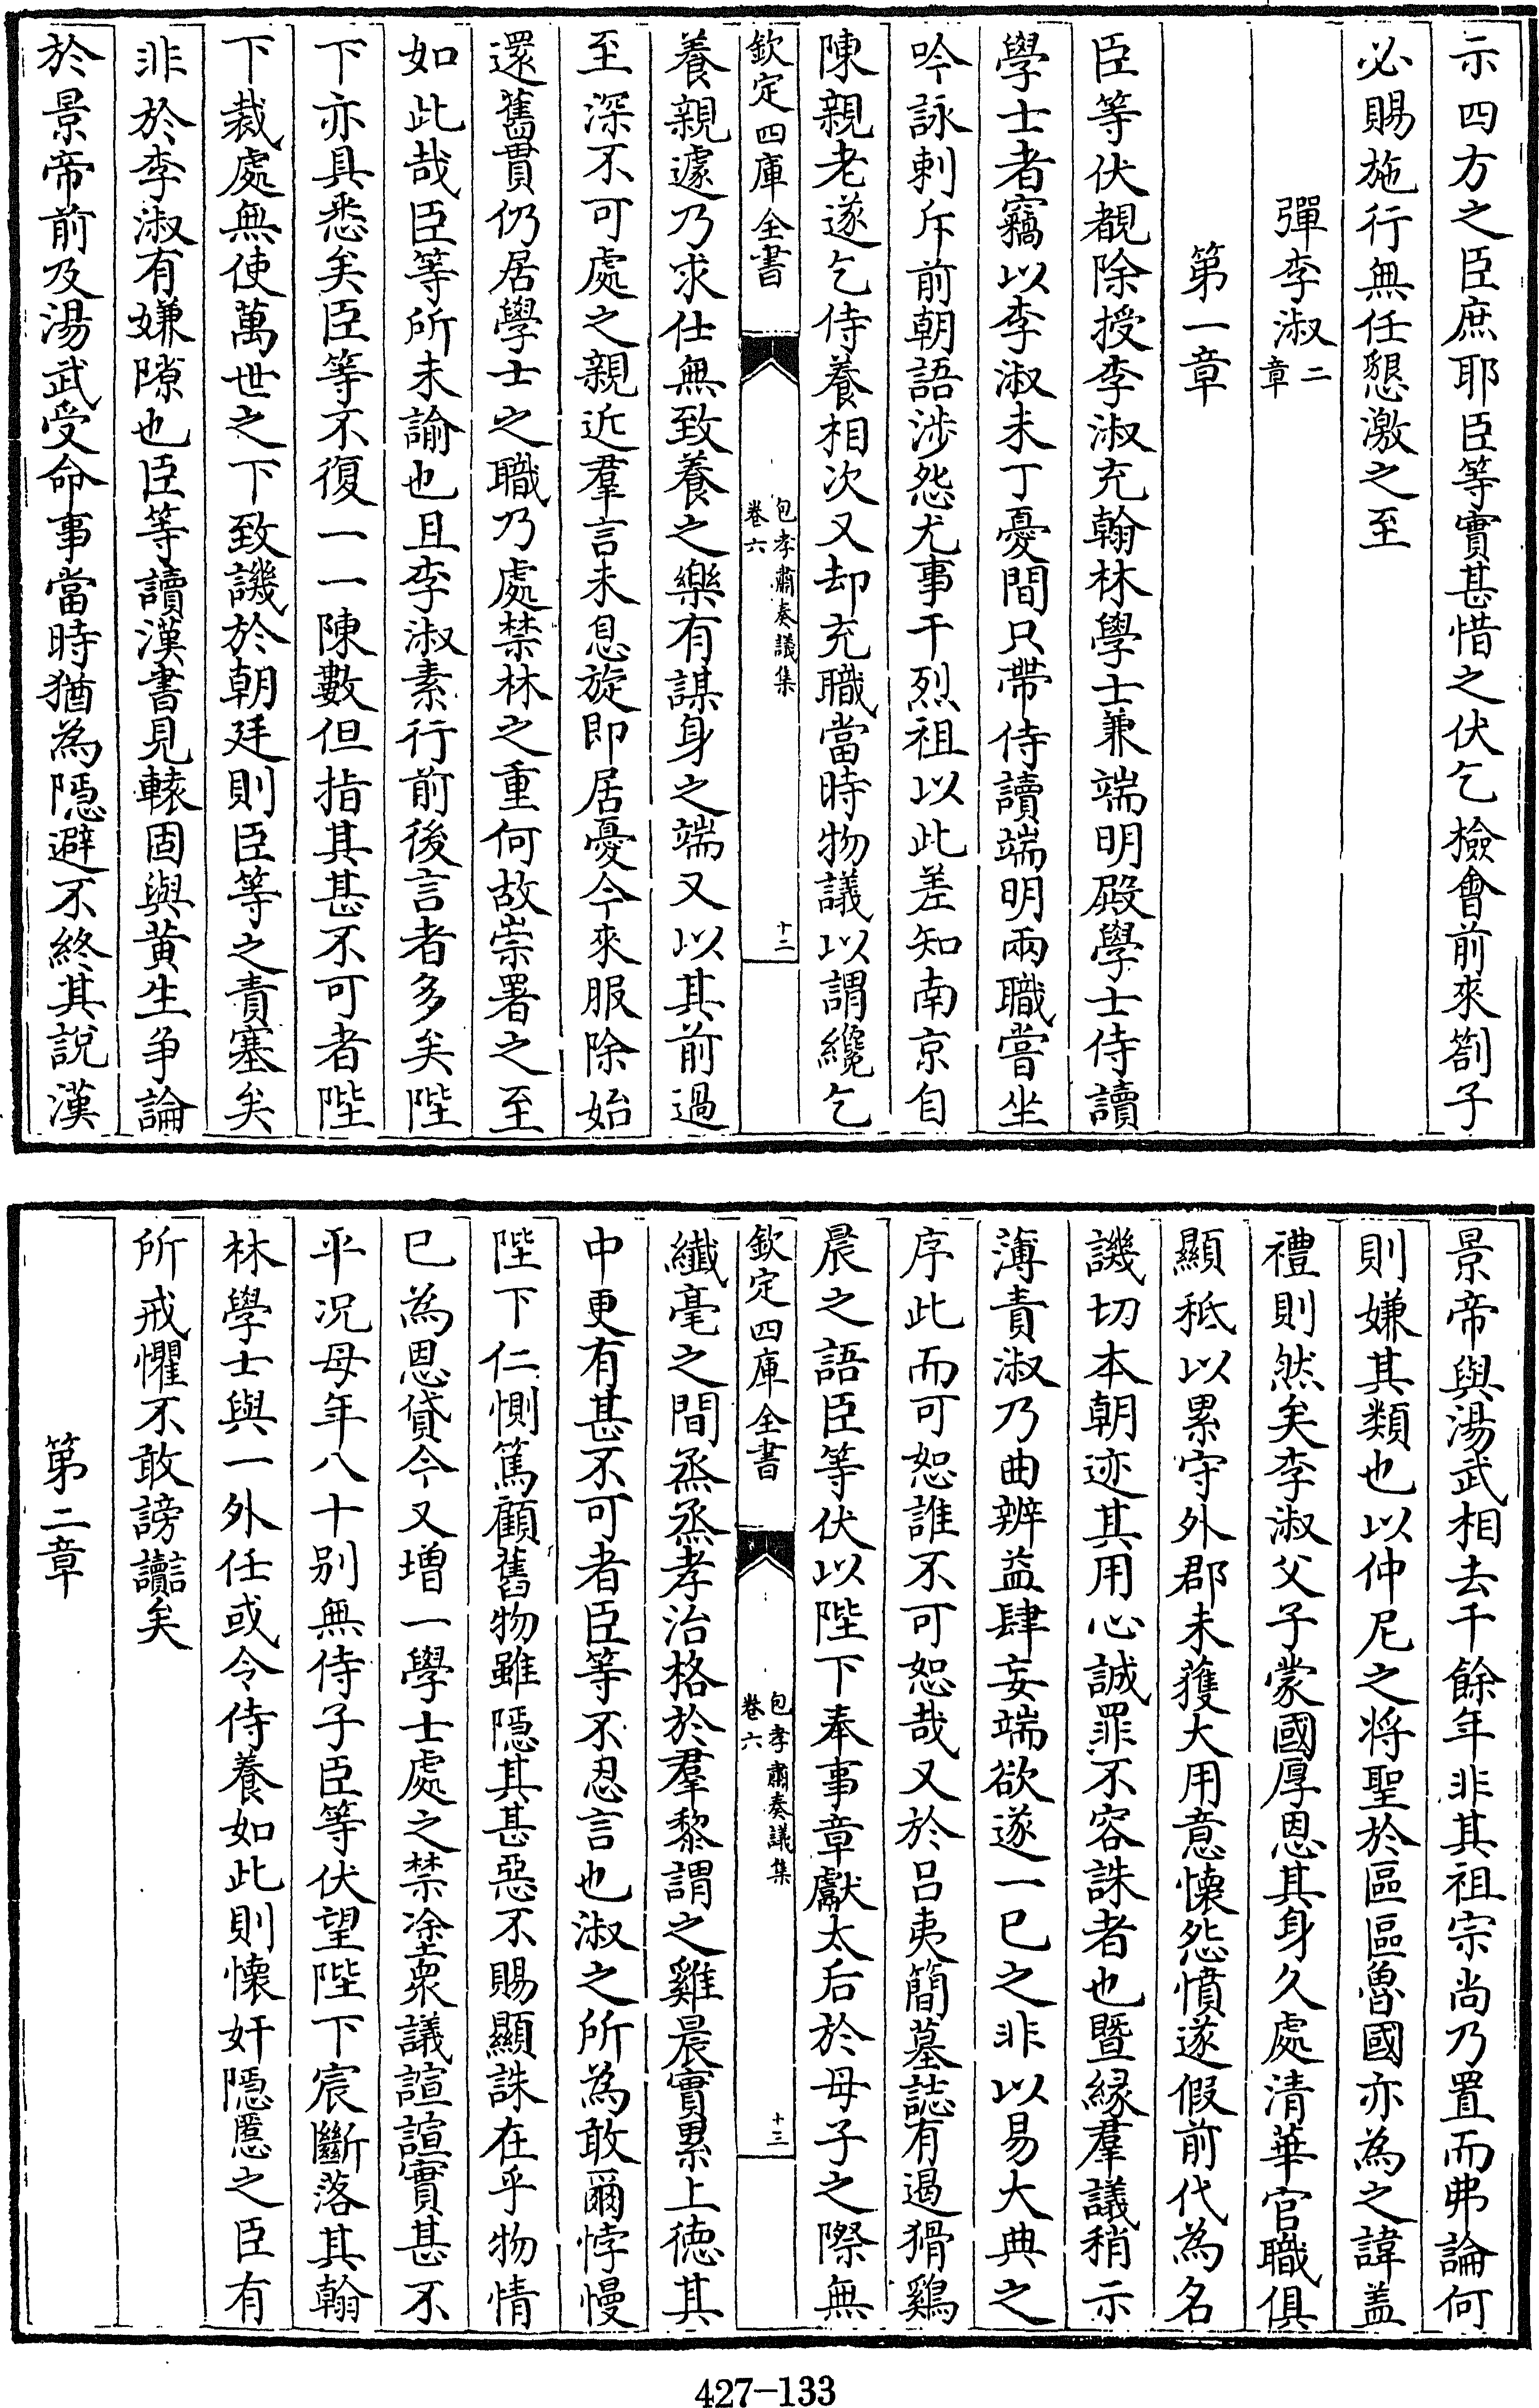 示四方之臣庶耶臣等實甚惜之伏乞檢會前來劄子
必賜施行無任懇激之至
彈李淑二章
第一章
臣等伏覩除授李淑充翰林學士兼端明殿學士侍讀
學士者竊以李淑未丁憂間只帶侍讀端明兩職嘗坐
吟詠刺斥前朝語涉怨尤事干烈祖以此差知南京自
陳親老遂乞侍養相次又却充職當時物議以謂纔乞
欽定四庫全書
包孝肅奏議集
卷六
十二
養親遽乃求仕無致養之樂有謀身之端又以其前過
至深不可處之親近羣言未息旋即居憂今來服除始
還舊貫仍居學士之職乃處禁林之重何故崇署之至
如此哉臣等所未諭也且李淑素行前後言者多矣陛
下亦具悉矣臣等不復一一陳數但指其甚不可者陛
下裁處無使萬世之下致譏於朝廷則臣等之責塞矣
非於李淑有嫌隙也臣等讀漢書見轅固與黄生争論
於景帝前及湯武受命事當時猶為隱避不終其說漢
景帝與湯武相去千餘年非其祖宗尚乃置而弗論何
則嫌其類也以仲尼之将聖於區區魯國亦為之諱盖
禮則然矣李淑父子蒙國厚恩其身久處清華官職俱
顯秪以累守外郡未獲大用意懷怨憤遂假前代為名
譏切本朝迹其用心誠罪不容誅者也暨縁羣議稍示
薄責淑乃曲辨益肆妄端欲遂一己之非以易大典之
序此而可恕誰不可恕哉又於吕夷簡墓誌有遏猾鷄
晨之語臣等伏以陛下奉事章獻太后於母子之際無
欽定四庫全書
包孝肅奏議集
卷六
十三
纖毫之間烝烝孝治格於羣黎謂之雞晨實累上徳其
中更有甚不可者臣等不忍言也淑之所為敢爾悖慢
陛下仁惻篤顧舊物雖隱其甚惡不賜顯誅在乎物情
已為恩貸今又增一學士處之禁塗衆議諠諠實甚不
平况母年八十别無侍子臣等伏望陛下宸斷落其翰
林學士與一外任或令侍養如此則懐奸隱慝之臣有
所戒懼不敢謗讟矣
第二章
427-133